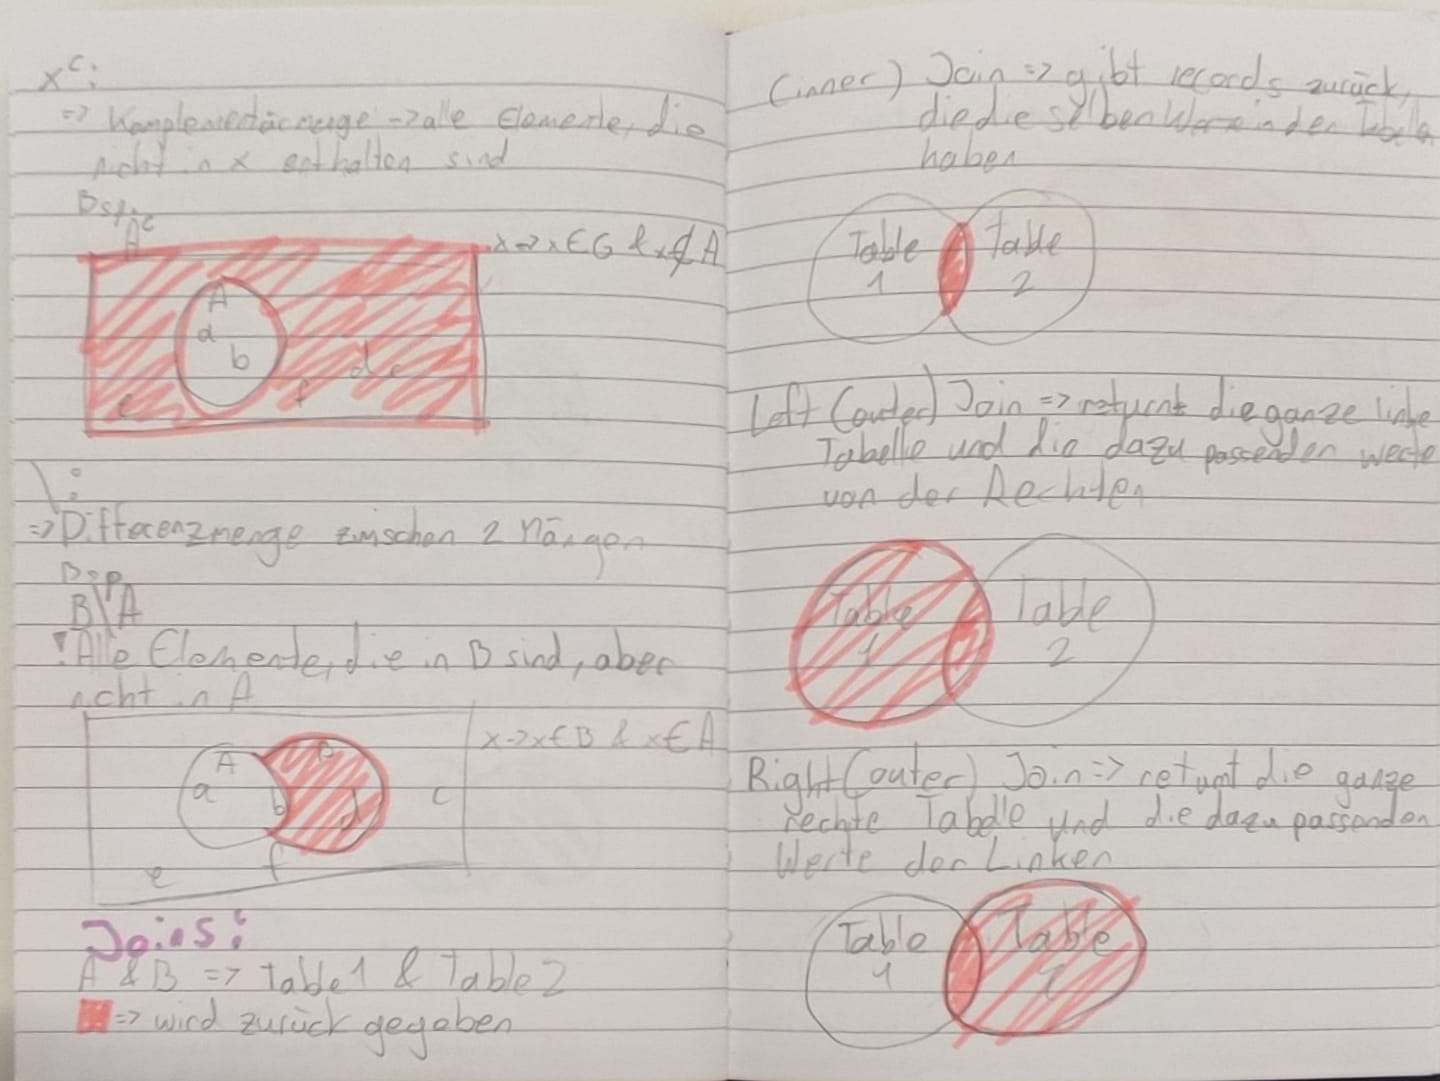 x^c:
=> Komplementärmenge -> alle Elemente, die
nicht in x enthalten sind
Bsp:
A^c
x -> x ∈ G & x ∉ A
A
a
b
d c
e
f
\ :
=> Differenzmenge zwischen 2 Mängen
Bsp
B\A
! Alle Elemente, die in B sind, aber
nicht in A
x -> x ∈ B & x ∈ A
A
B
a
b
d
c
e
f
Joins:
A & B => Table 1 & Table 2
=> wird zurück gegeben
(inner) Join => gibt records zurück,
die die selben Werte in den Tabellen
haben
Table
1
Table
2
Left (outer) Join => returnt die ganze linke
Tabelle und die dazu passenden werte
von der Rechten
Table
1
Table
2
Right (outer) Join => returnt die ganze
rechte Tabelle und die dazu passenden
Werte der Linken
Table
1
Table